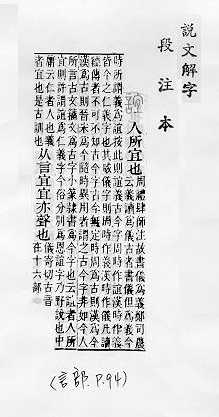 說文解字
段注本
誼 人所宜也 周禮肆師注故書儀爲義鄭司農
云義讀爲儀古者書儀但爲義今
時所謂義爲誼按此則誼義古今字周時作誼漢時作義
皆今之仁義字也其威儀字則周時作義漢時作儀凡讀
經傳者不可不知古今字古今無定時周爲古則漢爲今
漢爲古則晉宋爲今隨時異用者謂之古今字非如今人
所言古文籒文爲古字小篆隸書爲今字也云誼者人所
宜則許謂誼爲仁義字也今俗分別爲恩誼字乃野說也中
庸云仁者人也義
者宜也是古訓也
从言宜宜亦聲也
儀寄切古音
在十六部
(言部. P.94)